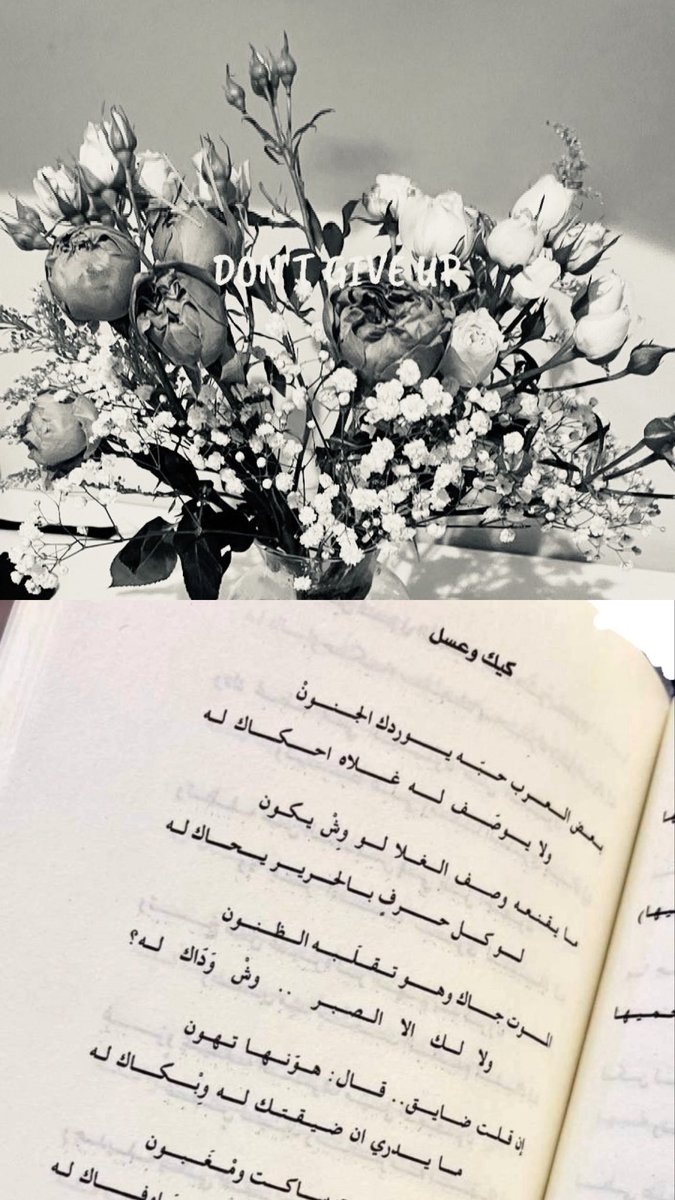 DON'T GIVE UP
كيك وعسل
بعض العرب حبّه يوردك الجنونْ
ولا يوصَف له غلاه احكاك له
ما يقنعه وصف الغلا لو وِشْ يكون
لو كل حرفٍ بالحرير يحاك له
الموت جاك وهو تقلّبه الظنون
ولا لك الا الصبر .. وشْ وَدّاك له؟
إن قلت ضايق.. قال: هوّنها تهون
ما يدري ان ضيقتك له وِبْكاك له
ساكت ومْغَبون
له